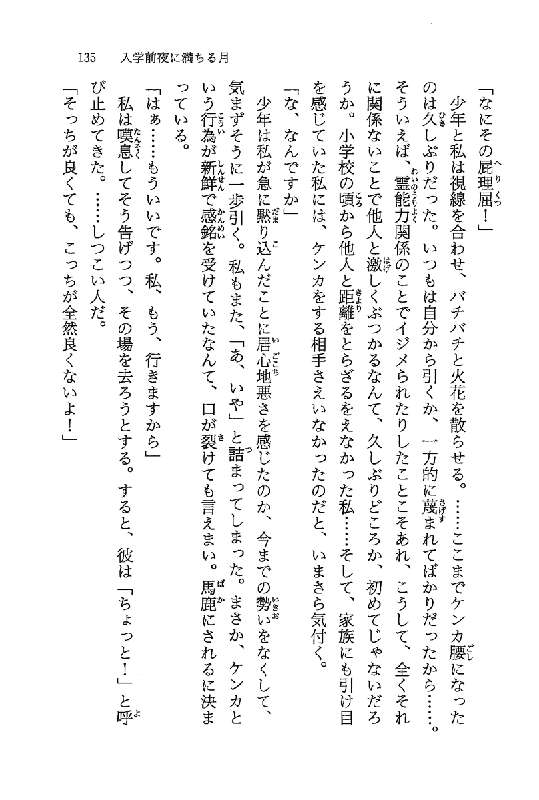 135　入学前夜に満ちる月
「なにその屁理屈！」
　少年と私は視線を合わせ、バチバチと火花を散らせる。……ここまでケンカ腰になった
のは久しぶりだった。いつもは自分から引くか、一方的に蔑まれてばかりだったから……。
そういえば、霊能力関係のことでイジメられたりしたことこそあれ、こうして、全くそれ
に関係ないことで他人と激しくぶつかるなんて、久しぶりどころか、初めてじゃないだろ
うか。小学校の頃から他人と距離をとらざるをえなかった私……そして、家族にも引け目
を感じていた私には、ケンカをする相手さえいなかったのだと、いまさら気付く。
「な、なんですか」
　少年は私が急に黙り込んだことに居心地悪さを感じたのか、今までの勢いをなくして、
気まずそうに一歩引く。私もまた、「あ、いや」と詰まってしまった。まさか、ケンカと
いう行為が新鮮で感銘を受けていたなんて、口が裂けても言えまい。馬鹿にされるに決ま
っている。
「はぁ……もういいです。私、もう、行きますから」
　私は嘆息してそう告げつつ、その場を去ろうとする。すると、彼は「ちょっと！」と呼
び止めてきた。……しつこい人だ。
「そっちが良くても、こっちが全然良くないよ！」